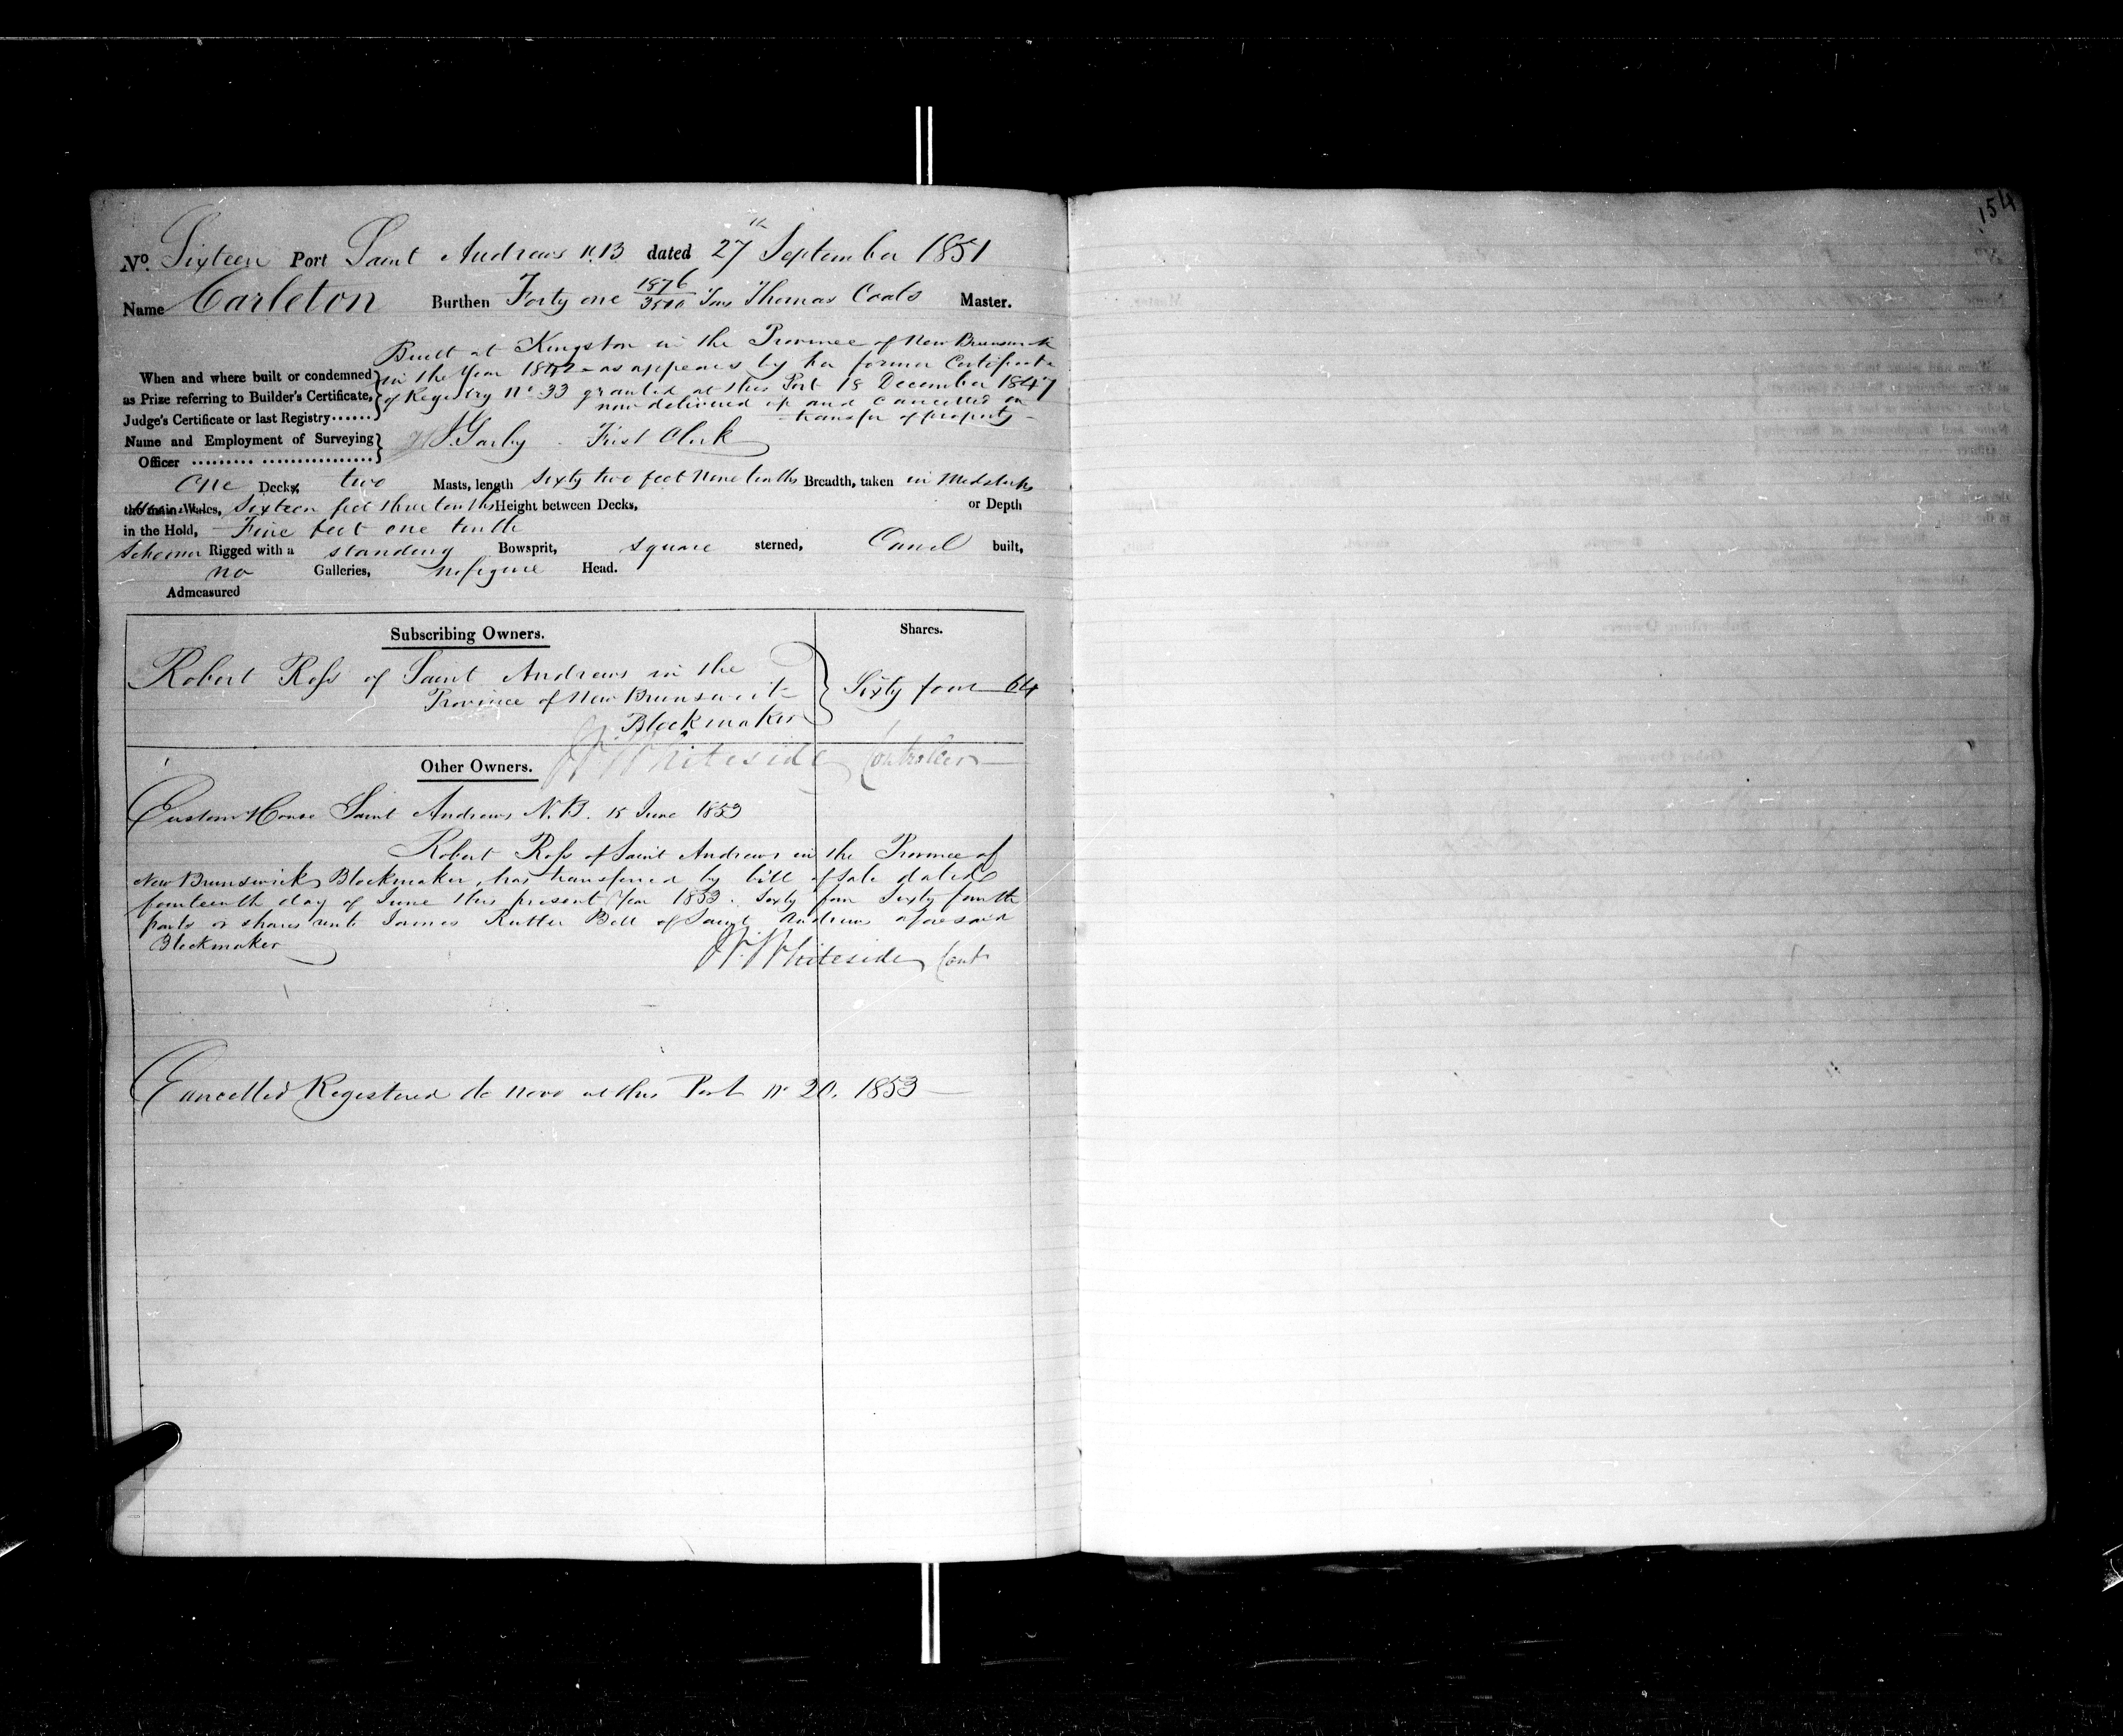 154
No. Sixteen Port Saint Andrews N.B dated 27th September 1851
Name Carleton Burthen Forty one 1876/3500 Tons Thomas Coals Master.
Built at Kingston in the Province of New Brunswick
When and where built or condemned in the Year 1842 as appears by her former Certificate
as Prize referring to Builder's Certificate, of Registry No. 33 granted at this Port 18 December 1847
now delivered up and Cancelled on
Judge's Certificate or last Registry...... transfer of property
Name and Employment of Surveying First Clerk
Officer ......... ................
One Decks, two Masts, length Sixty two feet nine tenths Breadth, taken in Midships
the main Wales, Sixteen feet three tenths Height between Decks, or Depth
in the Hold, Five feet one tenth
Schooner Rigged with a standing Bowsprit, square sterned, Carvel built,
no Galleries, no figure Head.
Admeasured
Subscribing Owners. Shares.
Robert Ross of Saint Andrews in the
Province of New Brunswick Sixty four 64
Blockmaker
Other Owners. Whiteside Controller
Custom House Saint Andrews N.B. 15 June 1853
Robert Ross of Saint Andrews in the Province of
New Brunswick Blockmaker, has transferred by bill of sale dated
fourteenth day of June this present Year 1853. Sixty four Sixty fourth
parts or shares unto James Rutter Bell of Saint Andrews aforesaid
Blockmaker
Whiteside Cont
Cancelled Registered de novo at this Port No 20. 1853